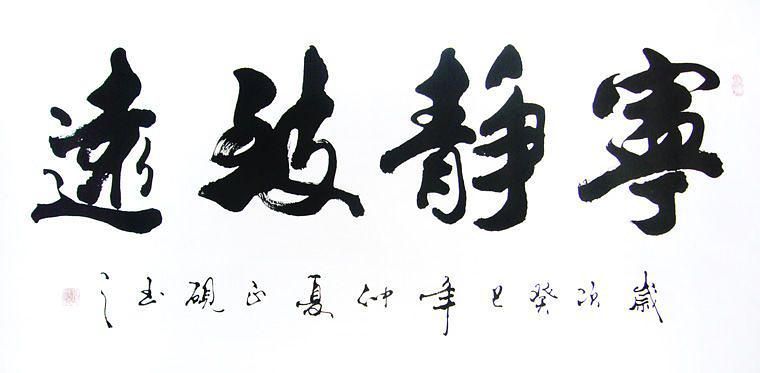 寧靜致遠
歲次癸巳年仲夏正硯書之